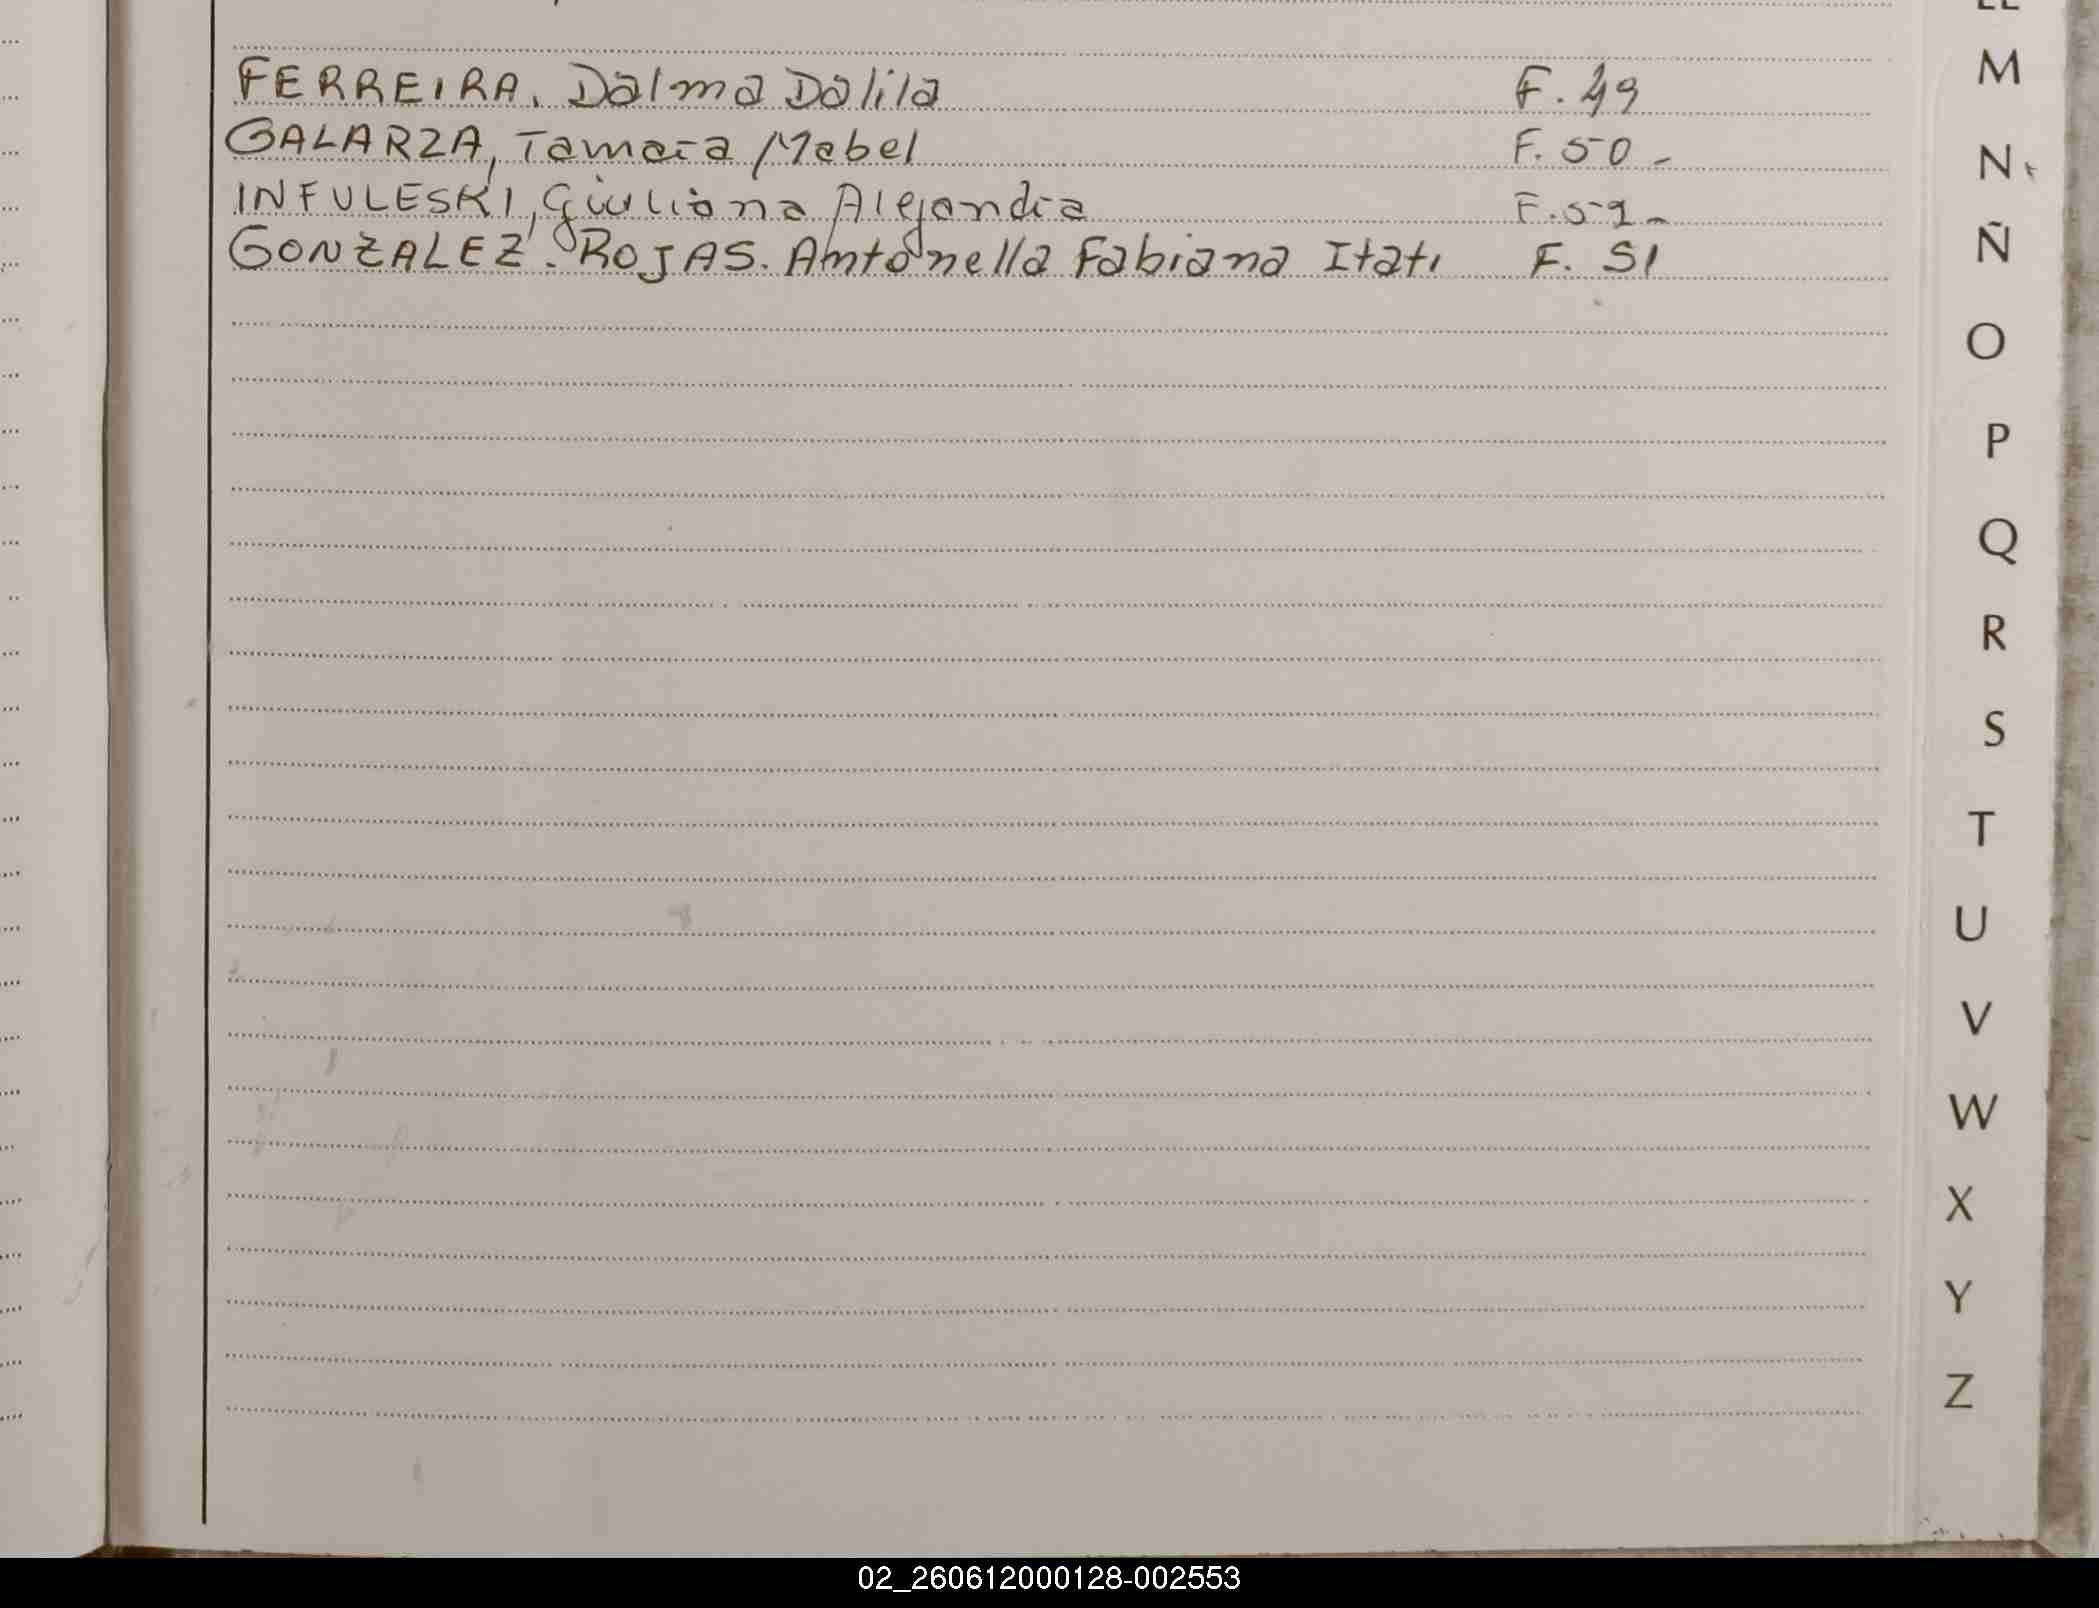 FERREIRA, Dalma Dalila F. 49
GALARZA, Tamara Mabel F. 50 -
INFULESKI, Giuliana Alejandra F. 51 -
GONZALEZ. ROJAS. Antonella Fabiana Itati F. 51
M
N
Ñ
O
P
Q
R
S
T
U
V
W
X
Y
Z
02_260612000128-002553